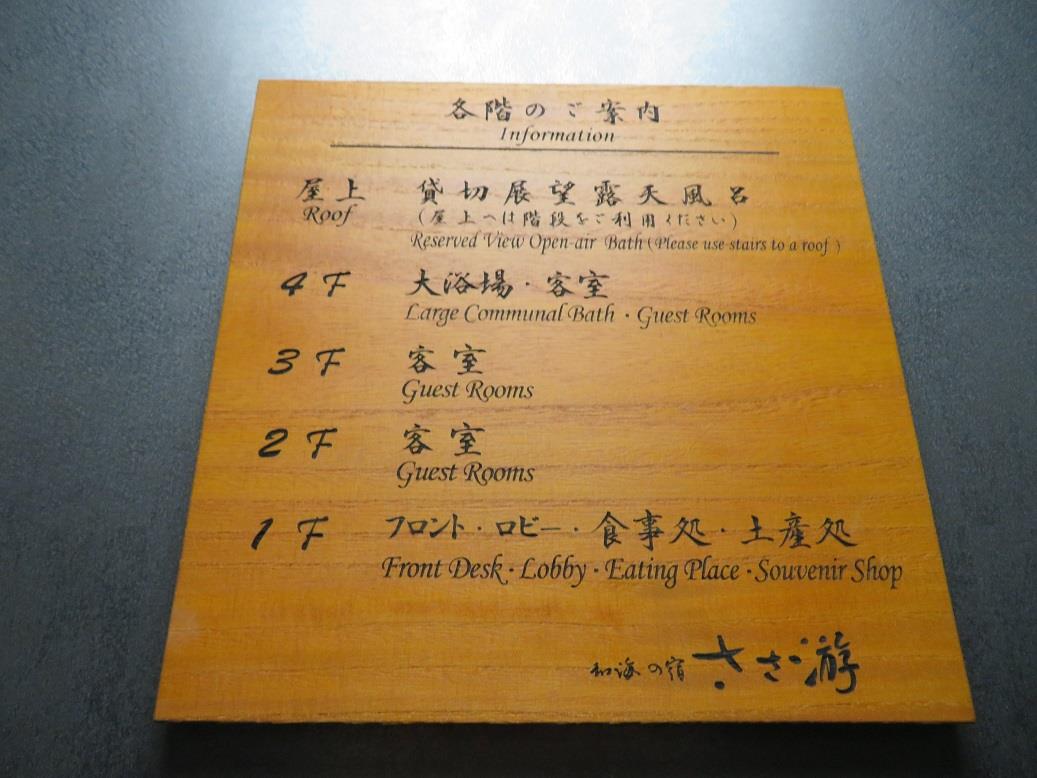 各階のご案内
Information
屋上 貸切展望露天風呂
Roof (屋上へは階段をご利用ください)
Reserved View Open-air Bath (Please use stairs to a roof)
4F 大浴場・客室
Large Communal Bath・Guest Rooms
3F 客室
Guest Rooms
2F 客室
Guest Rooms
1F フロント・ロビー・食事処・土産処
Front Desk・Lobby・Eating Place・Souvenir Shop
和海の宿 ささ游